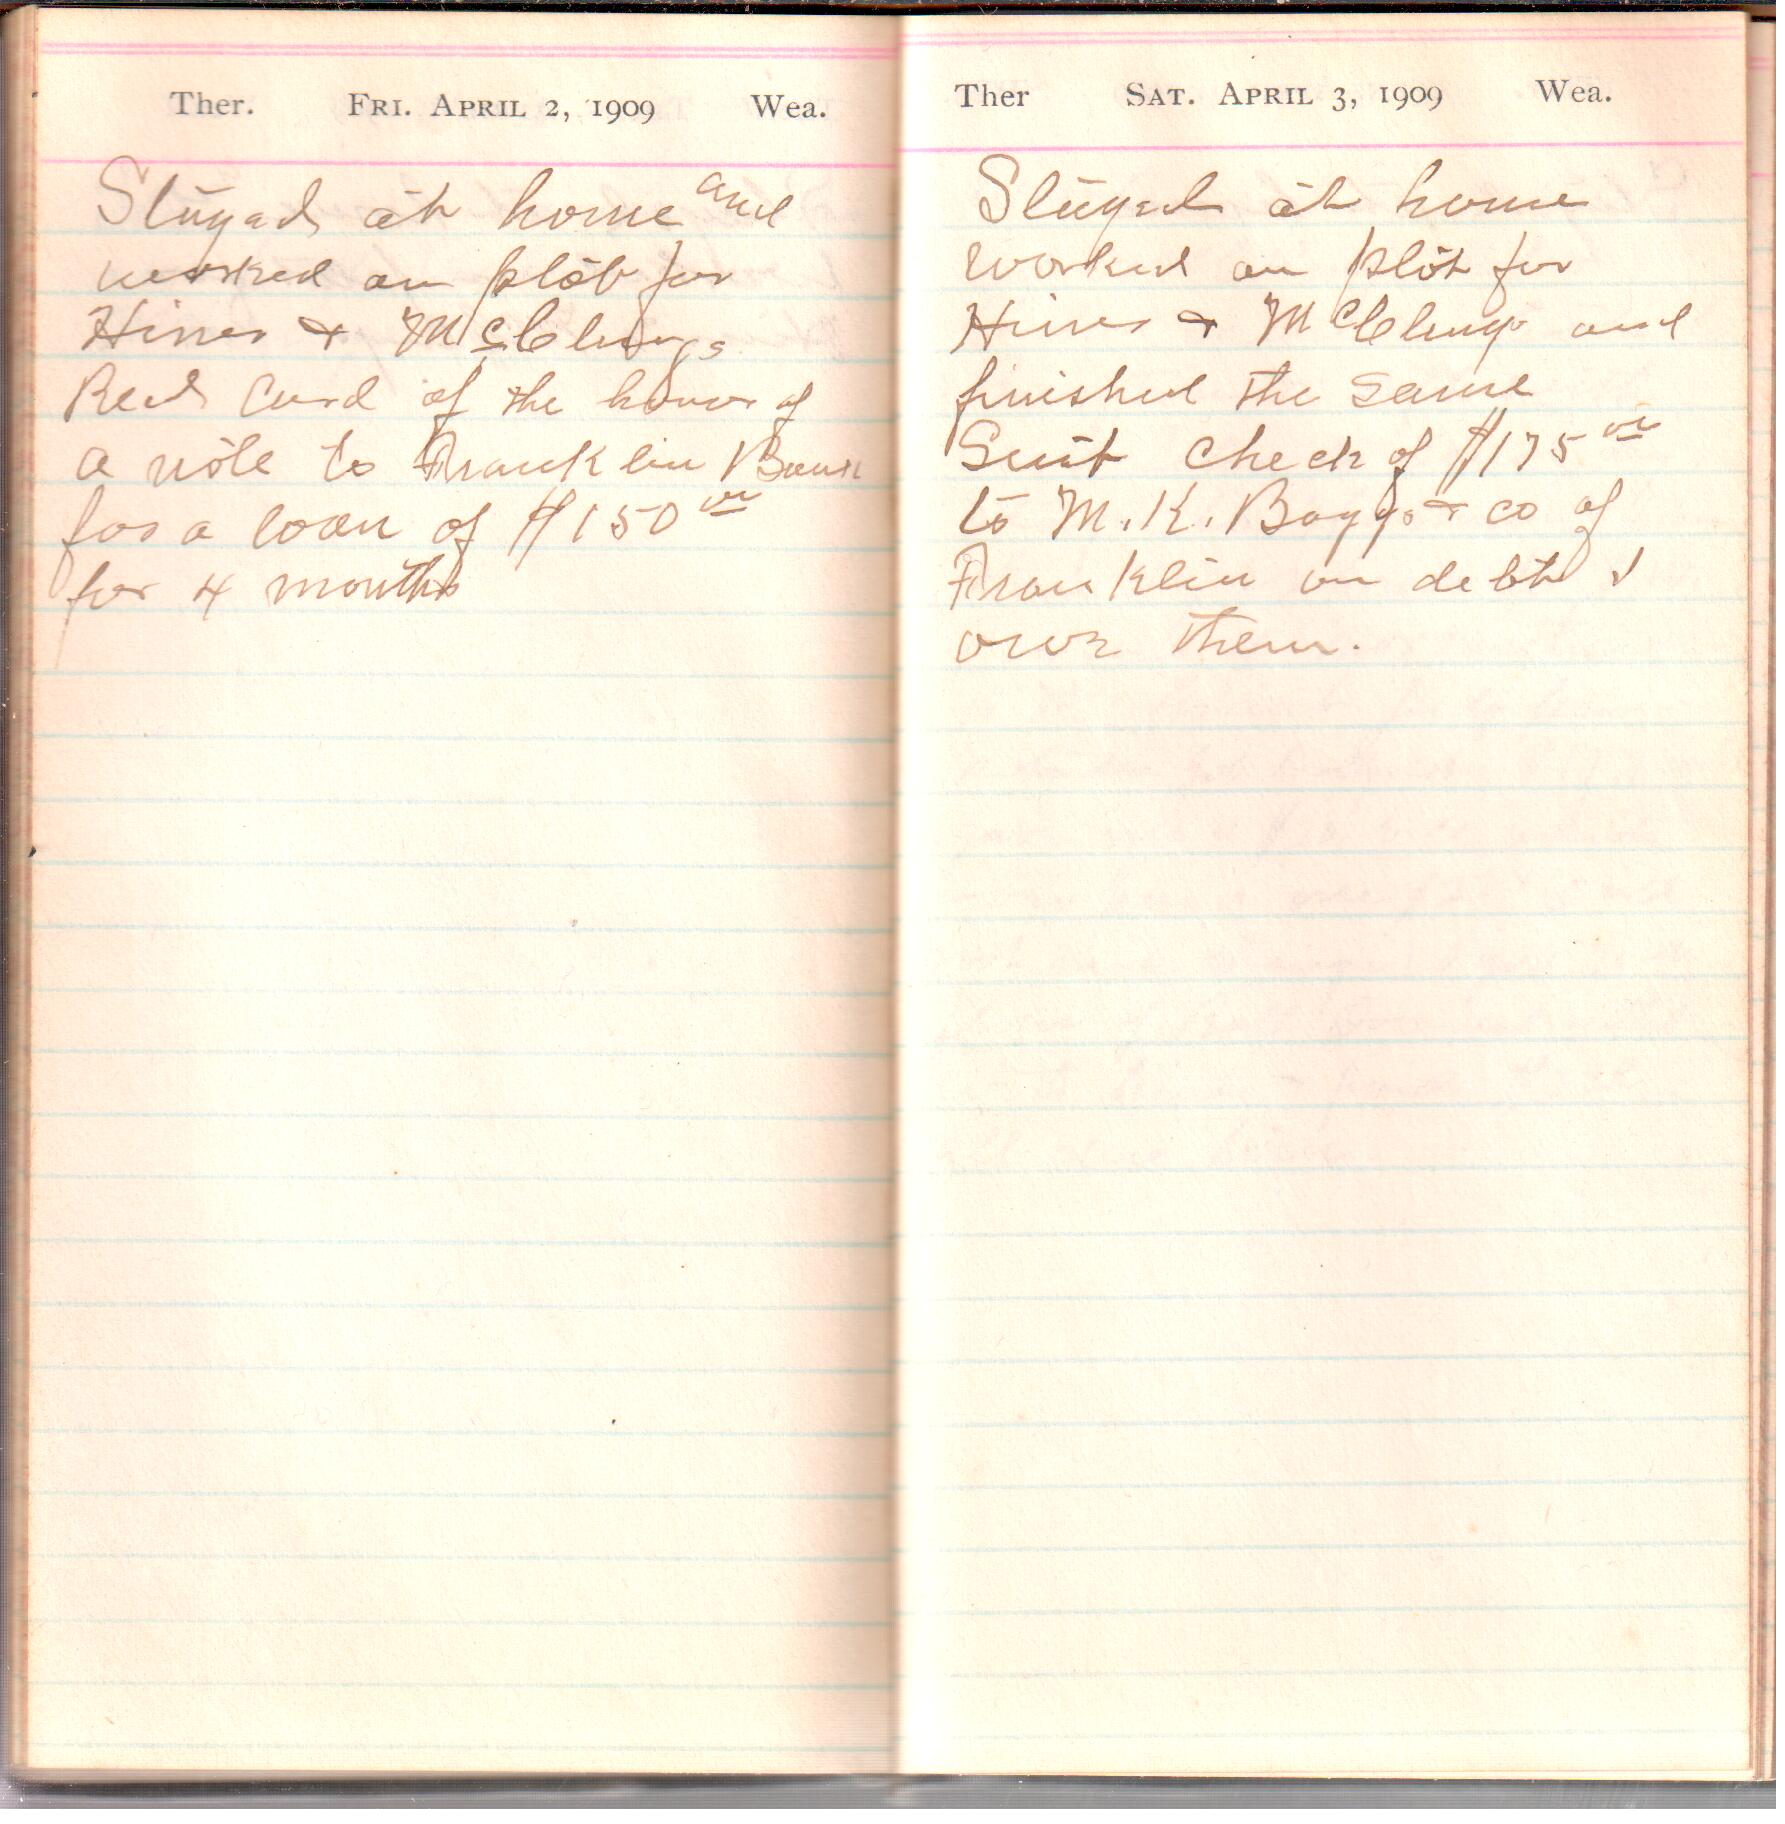 Ther. Fri. April 2, 1909 Wea.
Stayed at home and
worked on plot for
Hines & McClungs
Recd Card of the honor of
a note to Franklin Bank
for a loan of $150 00
for 4 months
Ther Sat. April 3, 1909 Wea.
Stayed at home
worked on plot for
Hines & McClungs and
finished the same
Sent check of $175 00
to M. K. Boggs & co of
Franklin on debt I
owe them.